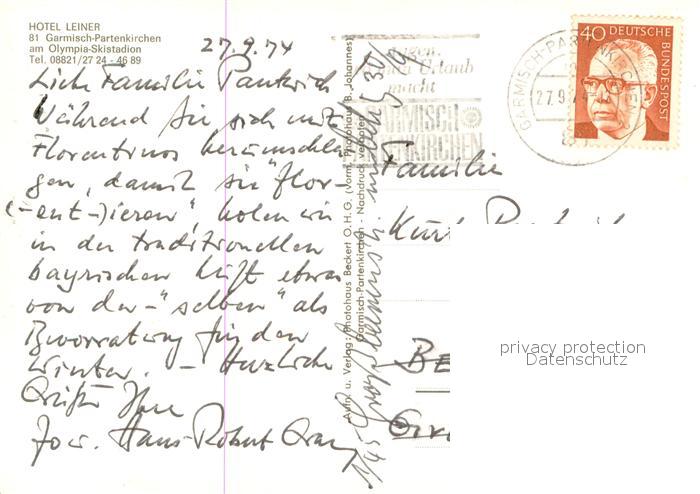 HOTEL LEINER
81 Garmisch-Partenkirchen
am Olympia-Skistadion
Tel. 08821/27 24 - 46 89
27.9.74
Liebe Familie
Während Sie sich mit
Florentinos herumschla-
gen, damit sie "flor-
(-ent-)ieren", holen wir
in der traditionellen
bayrischen Luft etwas
von der-"selben" als
Bevorratung für den
Winter. – Herzliche
Grüße Ihre
Hans-Robert
Aufn. u. Verlag: Photohaus Beckert O.H.G. (Vorm. Photohaus B. Johannes)
Garmisch-Partenkirchen - Nachdruck verboten
Urlaub
macht
GARMISCH
PARTENKIRCHEN
GARMISCH-PARTENKIRCHEN
27.9.74
40 DEUTSCHE
BUNDESPOST
Familie
Kurt
BE
privacy protection
Datenschutz